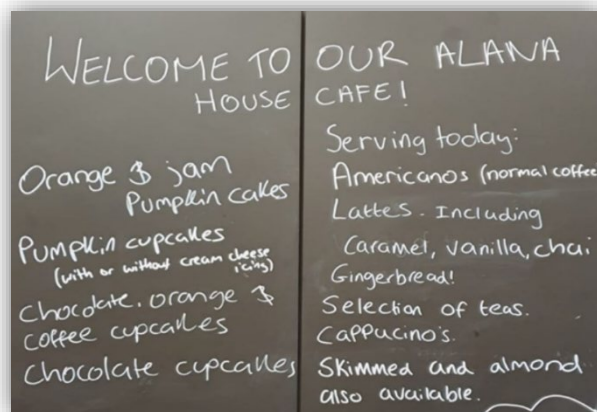 WELCOME TO OUR ALANA
HOUSE CAFE!
Orange & jam
Pumpkin cakes
Pumpkin cupcakes
(with or without cream cheese
icing)
Chocolate, orange &
coffee cupcakes
Chocolate cupcakes
Serving today:
Americanos (normal coffee
Lattes. Including
Caramel, vanilla, chai
Gingerbread!
Selection of teas.
Cappucino's.
Skimmed and almond
also available.